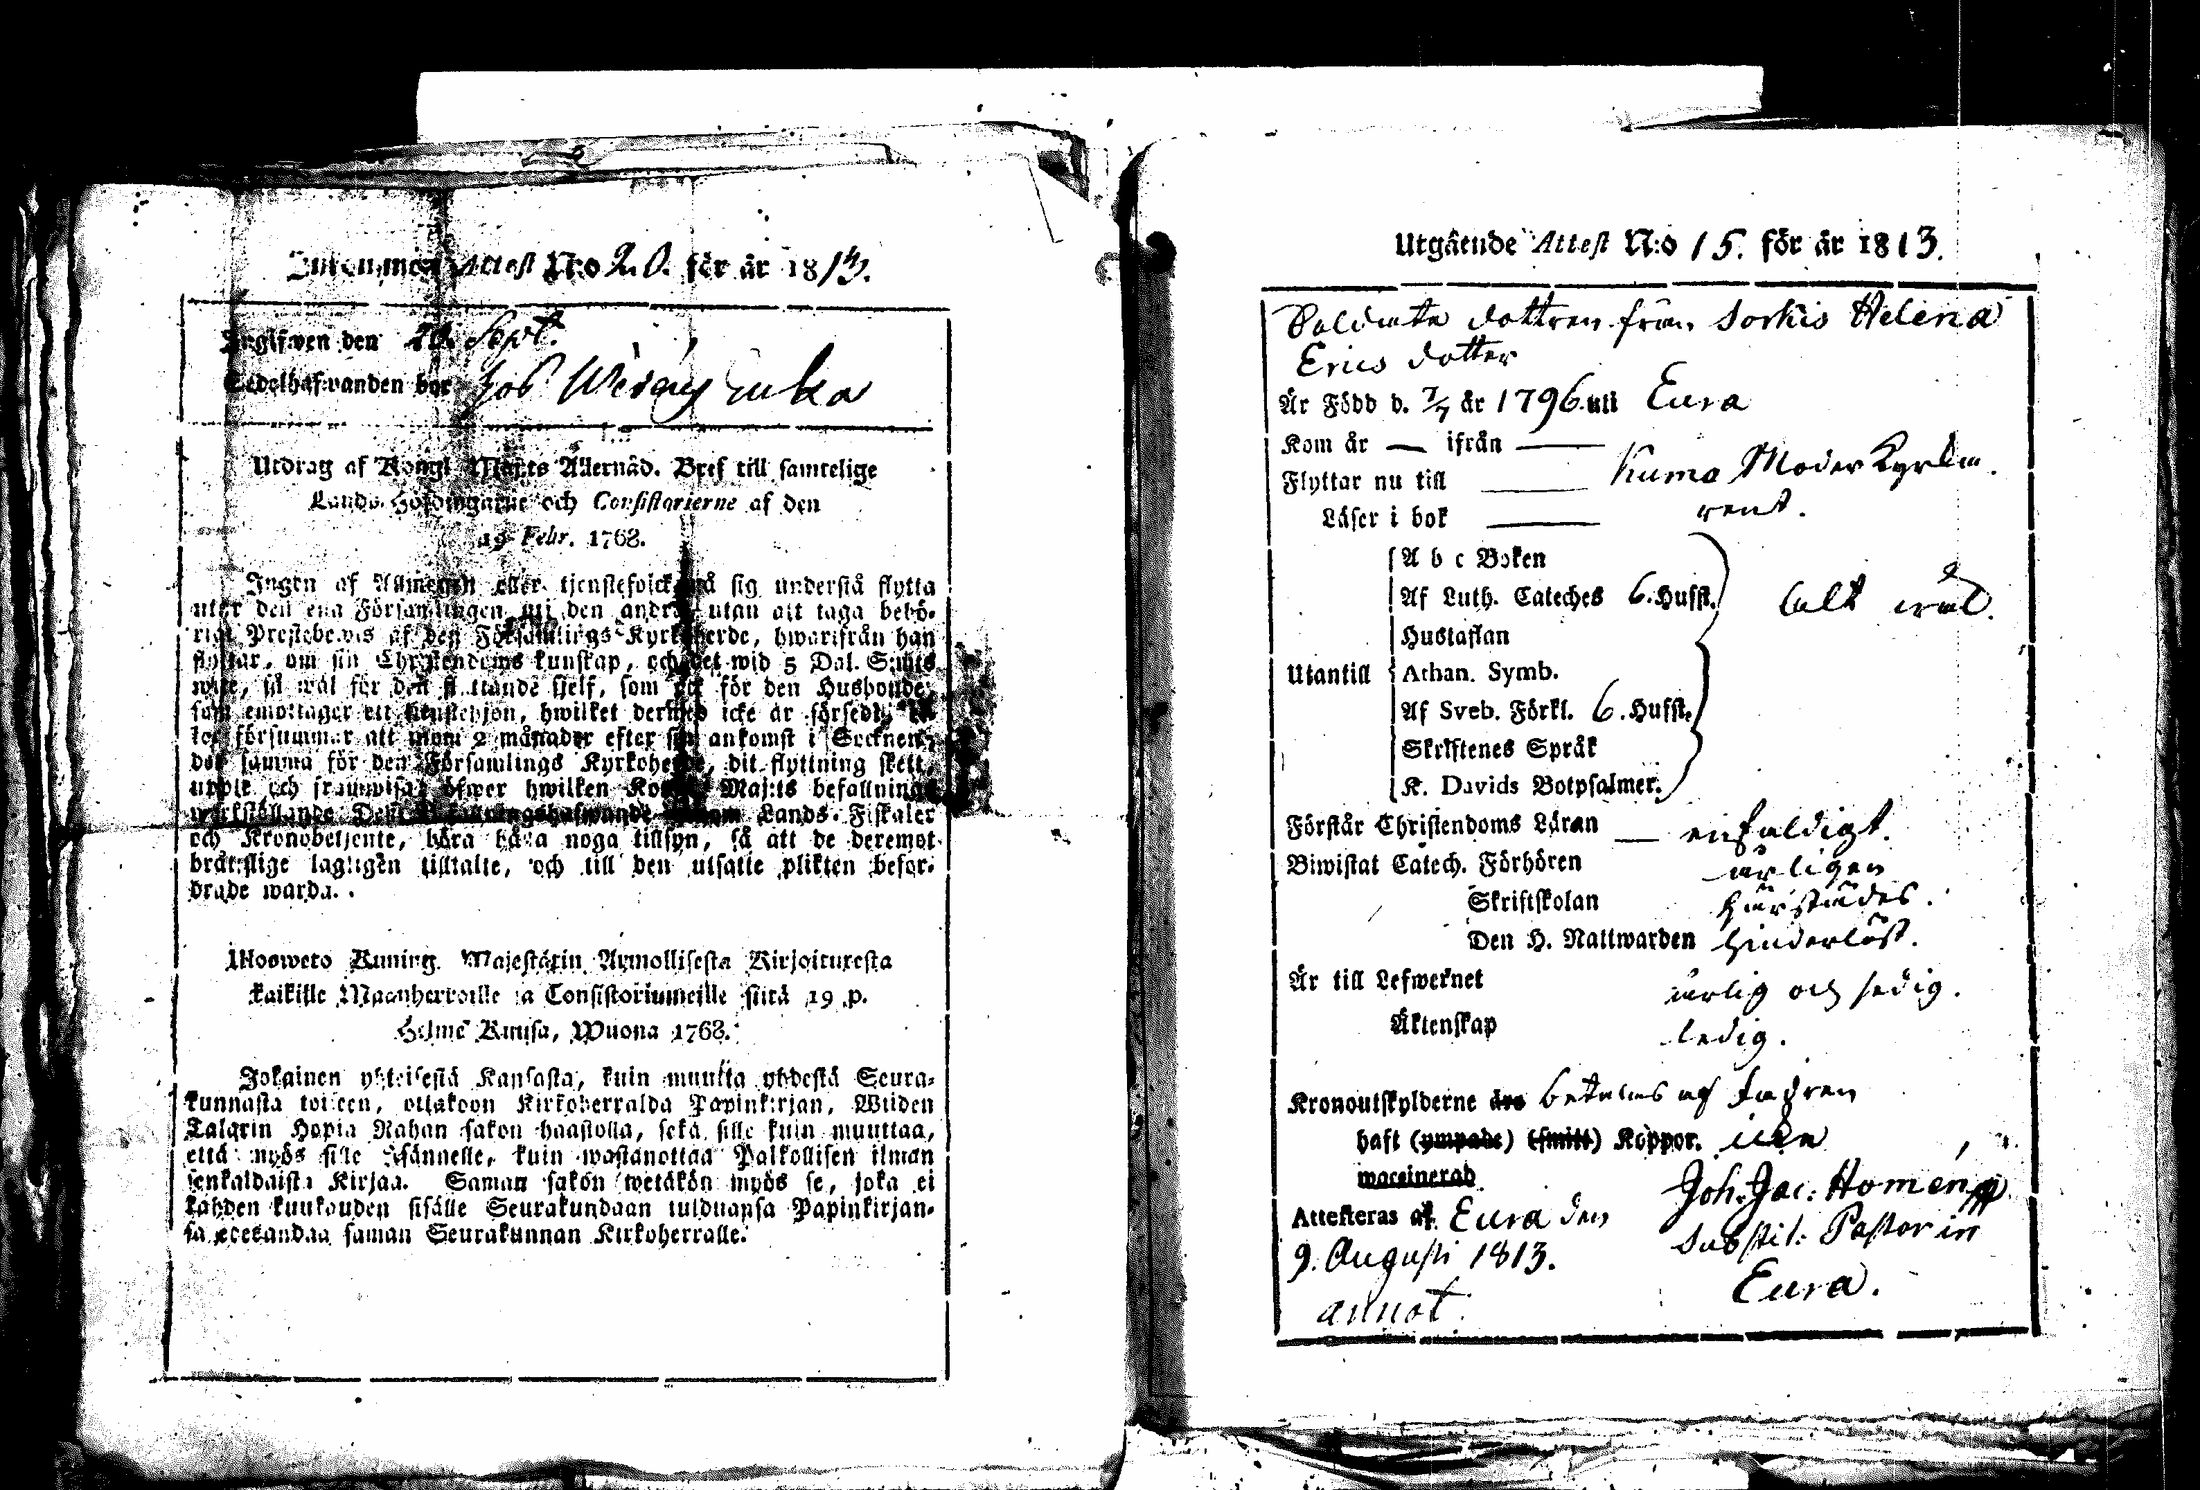 Inkommen Attest N:o 20. för år 1813.
Ingifwen den 20. Sept.
Sedelhafwanden bor hos
Utdrag af Kongl. Maj:ts Allernåd. Bref till samtelige
Lands-Höfdingarne och Consistorierne af den
19 Febr. 1768.
Ingen af Allmogen eller tjenstefolck må sig understå flytta
utur den ena Församlingen uti den andra, utan att taga behö-
rigt Prestebewis af den Församlings Kyrkoherde, hwarifrån han
flyttar, om sin Christendoms kunskap, och det wid 5 Dal. S:mts
wite, så wäl för den flyttande sjelf, som ock för den Husbonde,
som emottager ett tjenstehjon, hwilket dermed icke är försedt, el-
ler försummar att inom 2 månader efter sin ankomst i Socknen,
det samma för den Församlings Kyrkoherde, dit flyttning skett,
uppte och framwisa; öfwer hwilken Kongl. Maj:ts befallnings
werkställande Dess Befallningshafwande genom Lands-Fiskaler
och Kronobetjente, böra hafwa noga tillsyn, så att de deremot
bråtslige lagligen tilltalte, och till den utsatte plikten befor-
drade warda.
Ulosweto Kuning. Majestätin Armollisesta Kirjoituxesta
kaikille Maanherroille ja Consistoriumeille siitä 19 p.
Helme Kuusa, Wuonna 1768.
Jokainen yhteisestä Kansasta, kuin muutta yhdestä Seura-
kunnasta toiseen, ottakoon Kirkoherralda Papinkirjan, Wiiden
Talarin Hopia Rahan sakon haastolla, sekä sille kuin muuttaa,
että myös sille Isännelle, kuin wastanottaa Palkollisen ilman
senkaldaista Kirjaa. Saman sakon wetäkön myös se, joka ei
kahden kuukauden sisälle Seurakundaan tulduansa Papinkirjan-
sa edesandaa saman Seurakunnan Kirkoherralle.
Utgående Attest N:o 15. för år 1813.
Soldate dottren från Sorkis Helena
Erics dotter
Är Född d. 7/7 år 1796 uti Eura
Kom år — ifrån —
Flyttar nu till — Kumo Moder Kyrko.
Läser i bok — rent.
A b c Boken
Af Luth. Cateches 6. Hufst. alt wäl.
Hustaflan
Utantill Athan. Symb.
Af Sveb. Förkl. 6. Hufst.
Skriftenes Språk
K. Davids Botpsalmer.
Förstår Christendoms Läran — enfaldigt.
Biwistat Catech. Förhören årligen
Skriftskolan härstädes.
Den H. Nattwarden hinderlöst.
Är till Lefwernet ärlig och sedig.
Äktenskap ledig.
Kronoutskylderne äro betalas af fadren
haft (ympade) (smitt) Koppor. icke
waccinerad
Attesteras af. Eura den
9. Augusti 1813.
annot.
Joh. Jac: Homén
Substit: Pastor in
Eura.